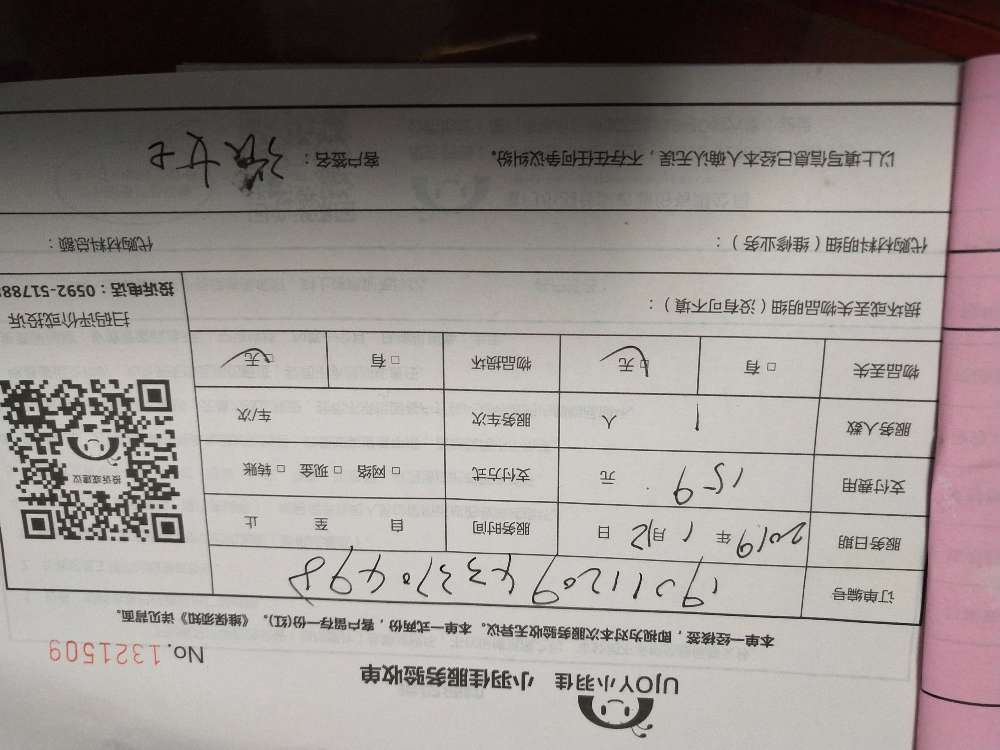 UJOY小羽佳 小羽佳服务验收单
No.1321509
本单一经签核，即视为对本次服务验收无异议。本单一式两份，客户留存一份(红)。《维保须知》详见背面。
订单编号
服务日期 2019年1月12日 服务时间 自 至 止
支付费用 159 元 支付方式 □网络 □现金 □转账
服务人数 1 人 服务车次 车/次
物品丢失 □有 □无 物品损坏 □有 □无
投诉或建议
扫码评价或投诉
投诉电话：0592-51788
损坏或丢失物品明细（没有可不填）：
代购材料明细（维修业务）： 代购材料总额：
以上填写信息已经本人确认无误，不存在任何争议纠纷。 客户签名：张女士